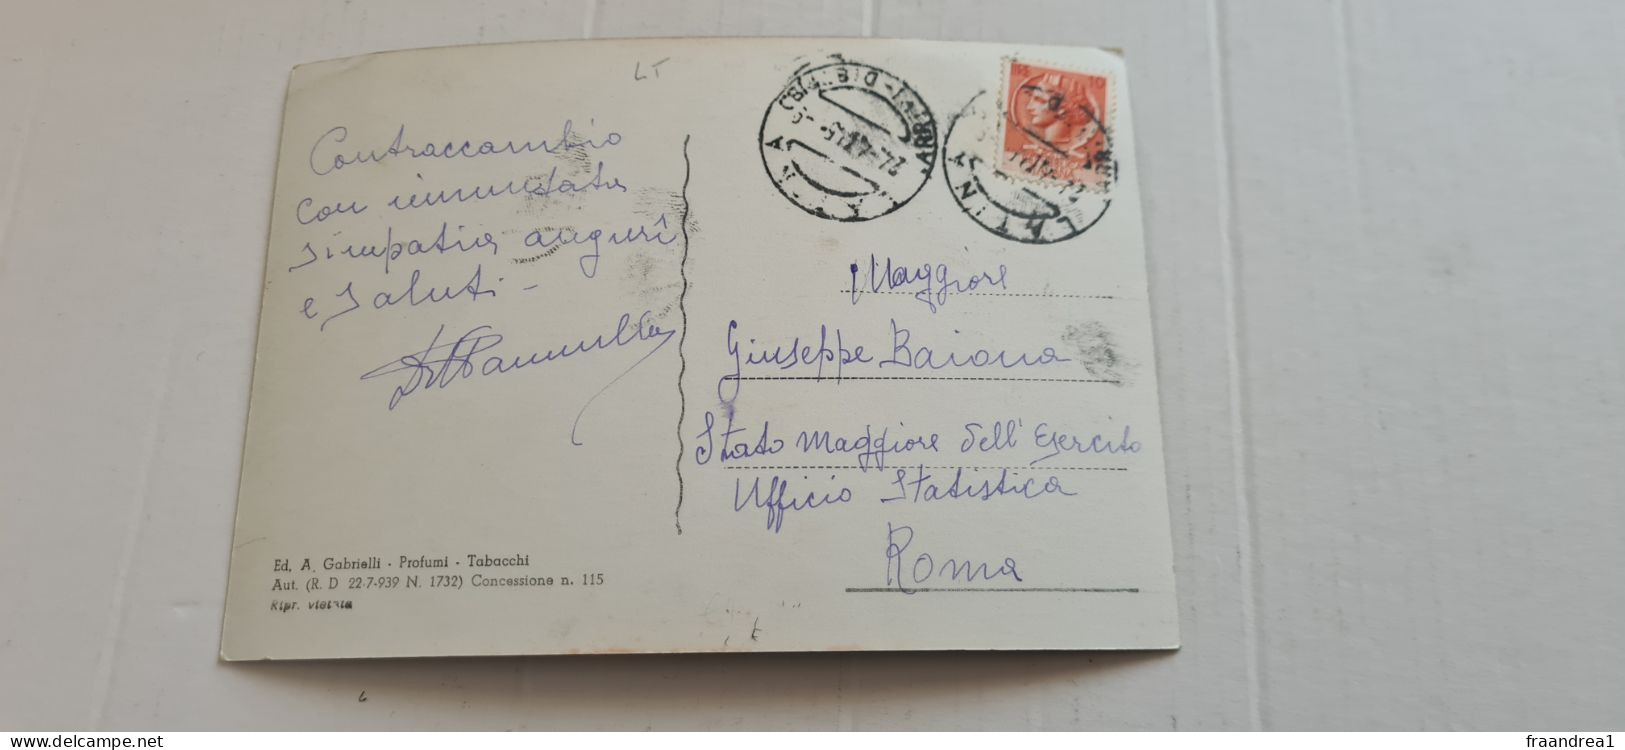 LT
Contraccambio
con immutata
simpatia auguri
e saluti -
ARRIVI - DIS
LATINA
LATINA
Maggiore
Giuseppe Baiona
Stato Maggiore dell' Esercito
Ufficio Statistica
Roma
Ed. A. Gabrielli - Profumi - Tabacchi
Aut. (R. D 22-7-939 N. 1732) Concessione n. 115
Ripr. vietata
www.delcampe.net
fraandrea1